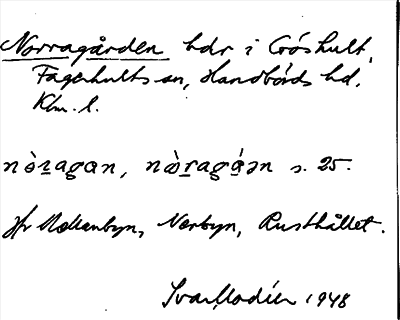 Norragården hdr i Cröshult,
Fagerhults sn, Handbörds hd.
Klm. l.
nòragan, nὼragǻən s. 25.
Jfr Mellanbyn, Nerbyn, Rusthållet.
Ivar Modéer 1948